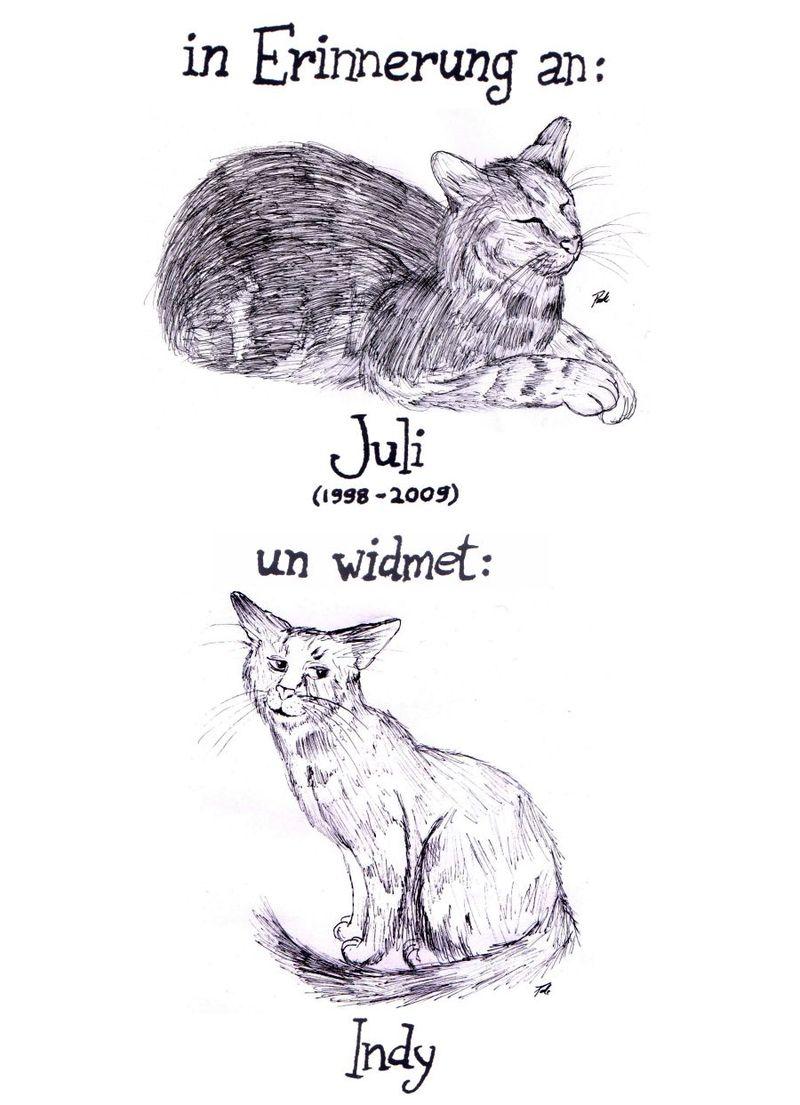 in Erinnerung an:
Juli
(1998-2009)
un widmet:
Indy